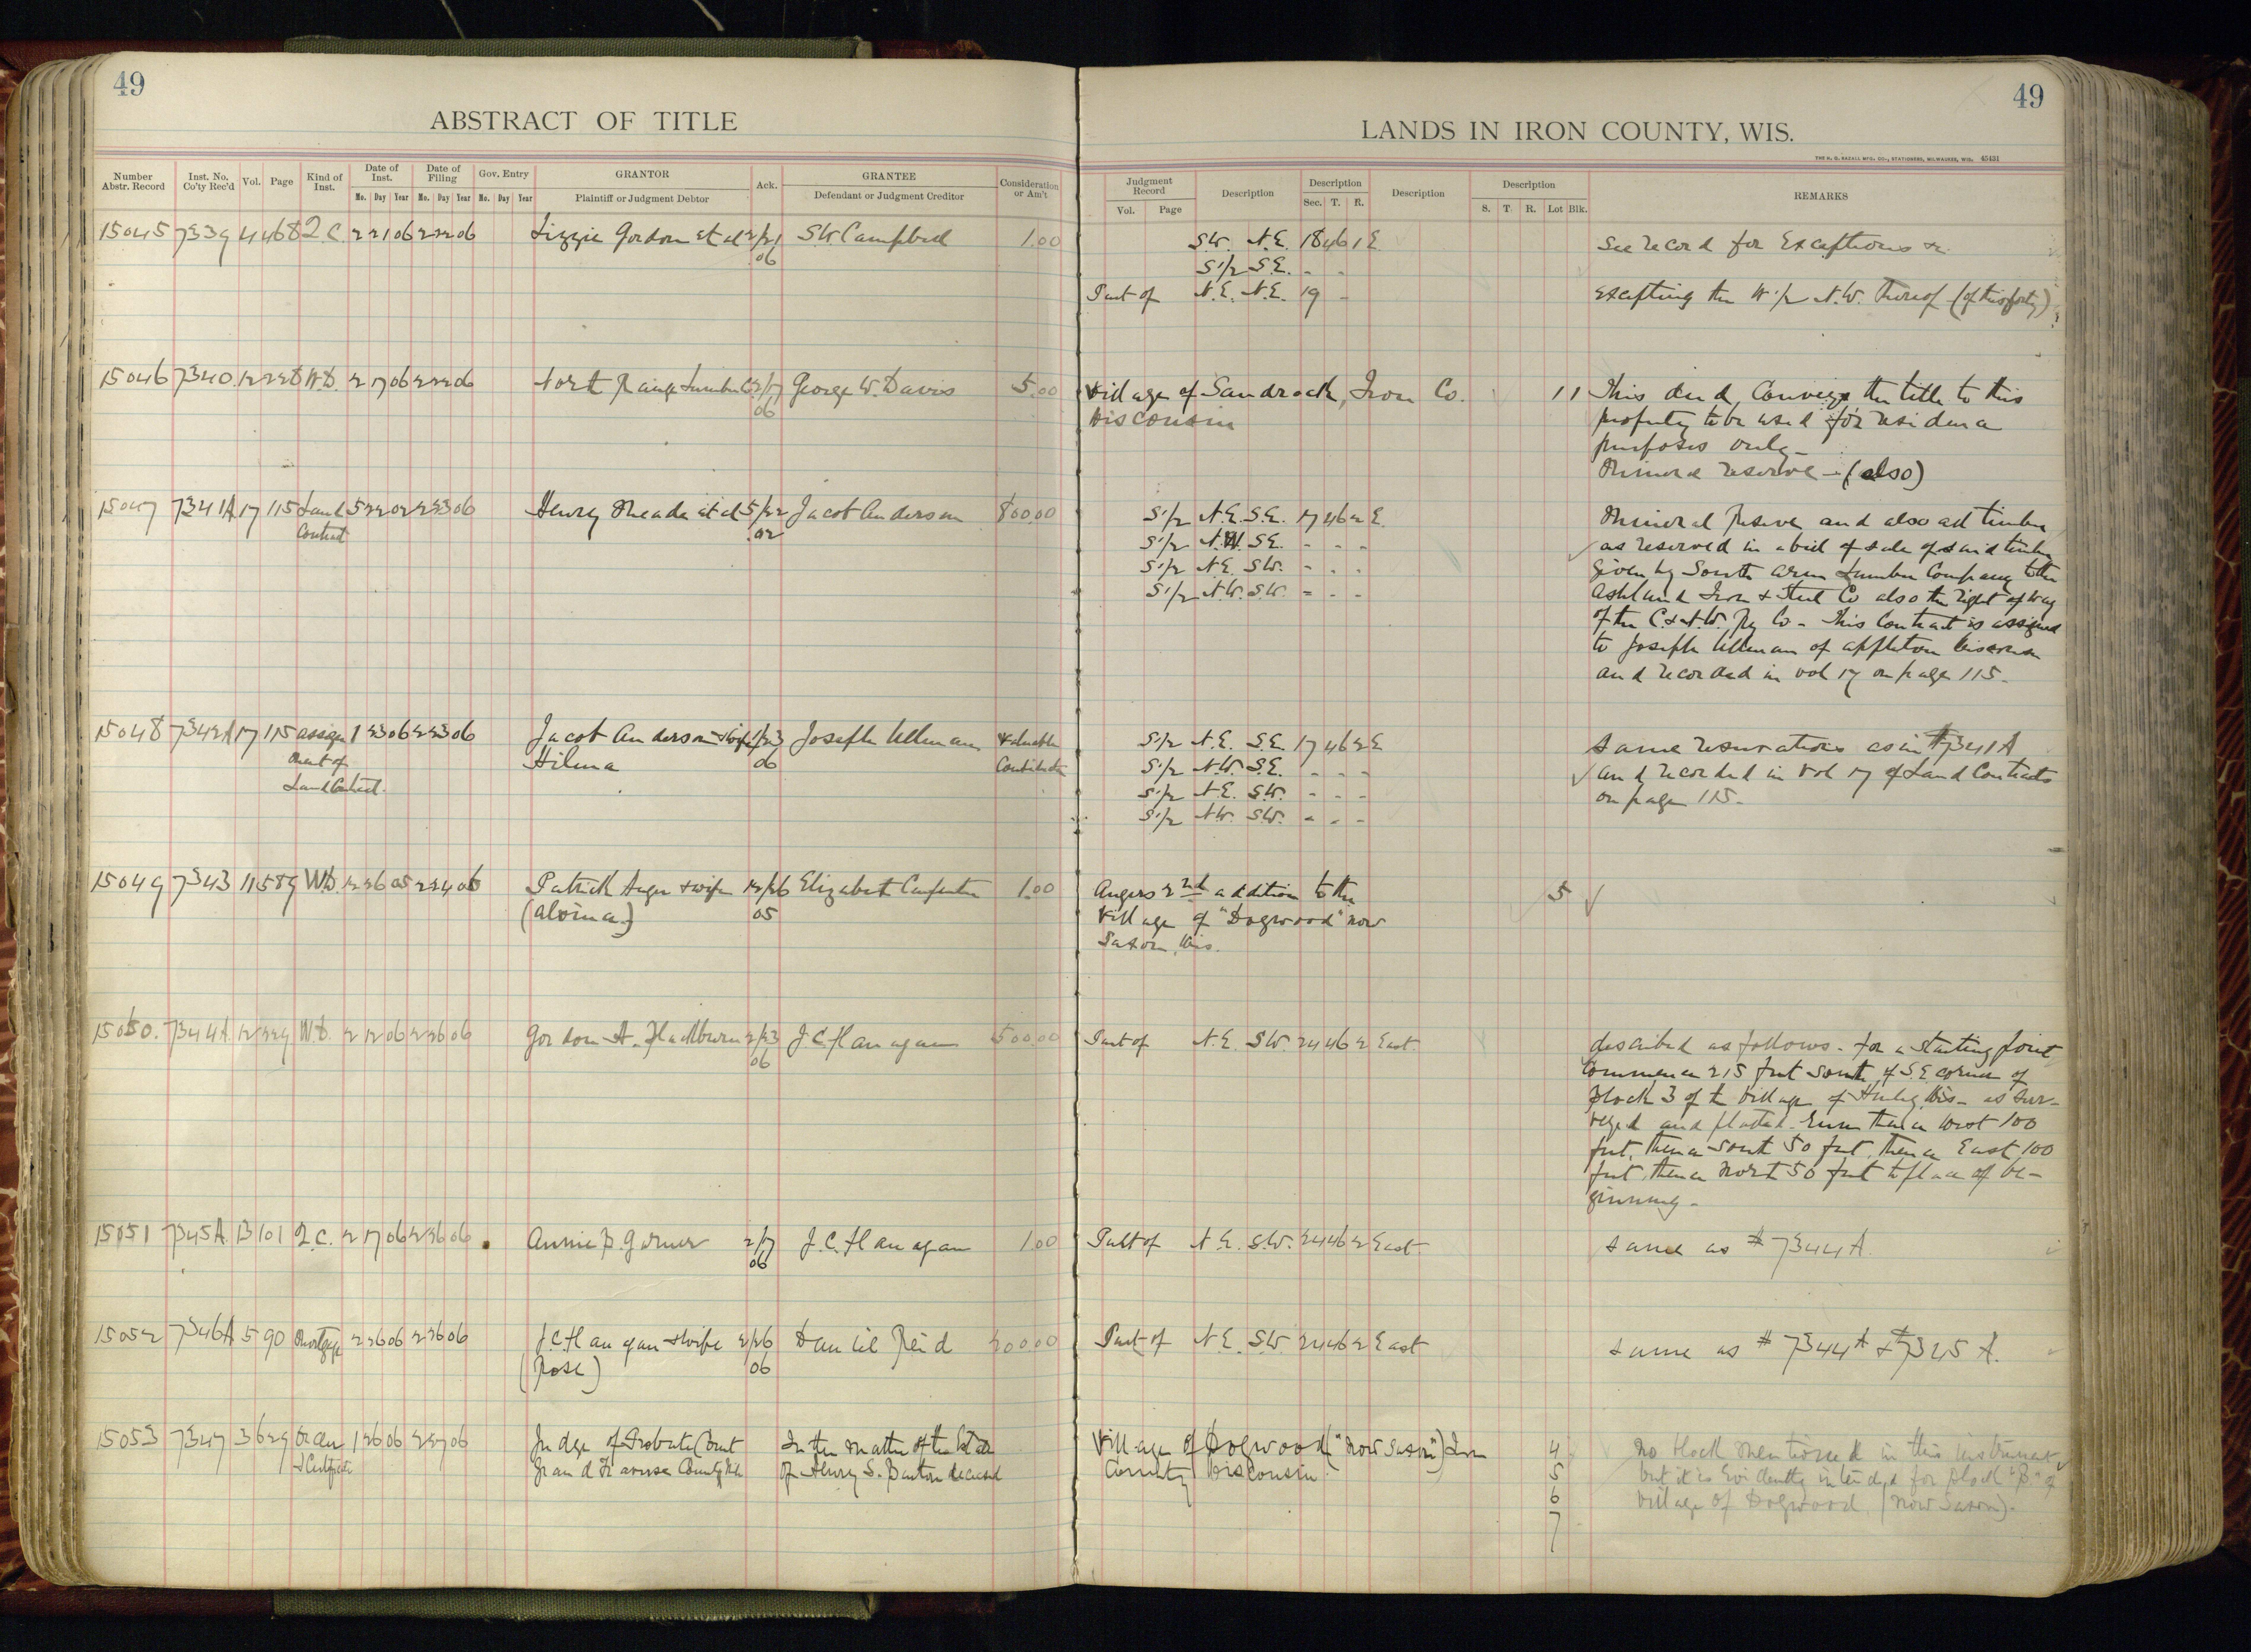 49
ABSTRACT OF TITLE
Number Abstr. Record Inst. No. Co'ty Rec'd Vol. Page Kind of Inst. Date of Inst. Mo. Day Year Date of Filing Mo. Day Year Gov. Entry Mo. Day Year GRANTOR Plaintiff or Judgment Debtor Ack. GRANTEE Defendant or Judgment Creditor Consideration or Am't
15045 7339 4 468 Q.C. 2 21 06 2 22 06 Lizzie Gordon et al 2/21 S.W. Campbell 1.00
06
15046 7340 12 228 W.D. 2 17 06 2 22 06 North Range Lumber Co. 2/17 George W. Davis 5.00
06
15047 7341A 17 115 Land 5 22 02 2 23 06 Henry Meade et al 5/22 Jacob Anderson 800.00
Contract 02
15048 7342A 17 115 assign 1 23 06 2 23 06 Jacob Anderson & wife 1/23 Joseph Ullman Valuable
ment of Hilma 06 Consideration
Land Contract.
15049 7343 11 589 W.D. 12 26 05 2 24 06 Patrick Auger & wife 12/26 Elizabeth Carpenter 1.00
(alvina) 05
15050. 7344A. 12 229 W.D. 2 12 06 2 26 06 Gordon H. 2/23 J.C. Flanagan 500.00
06
15051 7345A. 13 101 Q.C. 2 17 06 2 26 06 Annie B. Garner 2/17 J.C. Flanagan 1.00
06
15052 7346A 5 90 Mortgage 2 26 06 2 26 06 J.C. Flanagan & wife 2/26 Daniel Reid 200.00
(Rose) 06
15053 7347 3 629 Order 1 26 06 2 27 06 Judge of Probate Court In the matter of the Estate
& Certificate Grand Traverse County Mich of Henry S. deceased
49
LANDS IN IRON COUNTY, WIS.
THE H. G. RAZALL MFG. CO., STATIONERS, MILWAUKEE, WIS. 45431
Judgment Record Vol. Page Description Description Sec. T. R. Description Description S. T. R. Lot Blk. REMARKS
SW. N.E. 18 46 1 E See record for Exceptions &c.
S1/2 S.E. - -
Part of N.E. N.E. 19 - excepting the W1/2 N.W. thereof (of this forty)
Village of Sandrock, Iron Co. 1 1 This deed, Conveys the title to this
Wisconsin property to be used for residence
purposes only-
Mineral reserve - (also)
S1/2 N.E. S.E. 17 46 2 E. Mineral Reserve and also all timber
S1/2 N.W. S.E. - - - as reserved in a bill of sale of said timber
S1/2 N.E. S.W. - - - given by South Arm Lumber Company to the
S1/2 N.W. S.W. - - - Ashland Iron & Steel Co also the right of way
of the C. & N.W. Ry Co - This Contract is assigned
to Joseph Ullman of Appleton Wisconsin
and recorded in vol 17 on page 115-
S1/2 N.E. S.E. 17 46 2 E same reservations as in #7341A
S1/2 N.W. S.E. - - - and recorded in Vol 17 of Land Contracts
S1/2 N.E. S.W. - - - on page 115-
S1/2 N.W. S.W. - - -
Augers 2nd addition to the 5
Village of "Dogwood" now
Saxon, Wis.
Part of N.E. S.W. 24 46 2 East. described as follows - for a starting point
Commence 215 feet south of S.E corner of
Block 3 of the Village of Hurley, Wis - as sur-
veyed and platted. Run thence West 100
feet, thence South 50 feet, thence East 100
feet, thence North 50 feet to place of be-
ginning -
Part of N.E. S.W. 24 46 2 East. same as #7344A.
Part of N.E. S.W. 24 46 2 East same as #7344A & #7345A.
Village of Dogwood ("now Saxon") Iron 4 No block mentioned in this instrument
County Wisconsin. 5 but it is Evidently intended for block "B" of
6 Village of Dogwood (now Saxon).
7